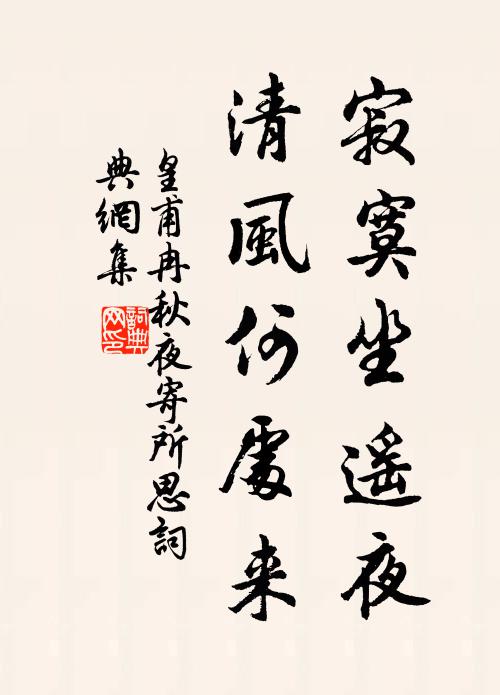 寂寞坐遥夜
清風何處来
皇甫冉秋夜寄所思詞
典網集
詞典网印